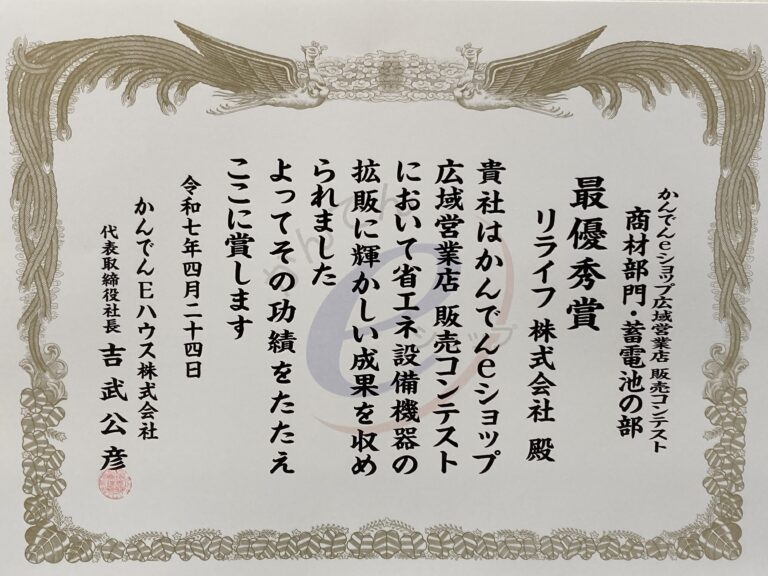 かんでんeショップ広域営業店 販売コンテスト
商材部門・蓄電池の部
最優秀賞
リライフ 株式会社 殿
貴社はかんでんeショップ
広域営業店 販売コンテスト
において省エネ設備機器の
拡販に輝かしい成果を収め
られました
よってその功績をたたえ
ここに賞します
令和七年四月二十四日
かんでんEハウス株式会社
代表取締役社長 吉武公彦
かんでん
e
ショップ